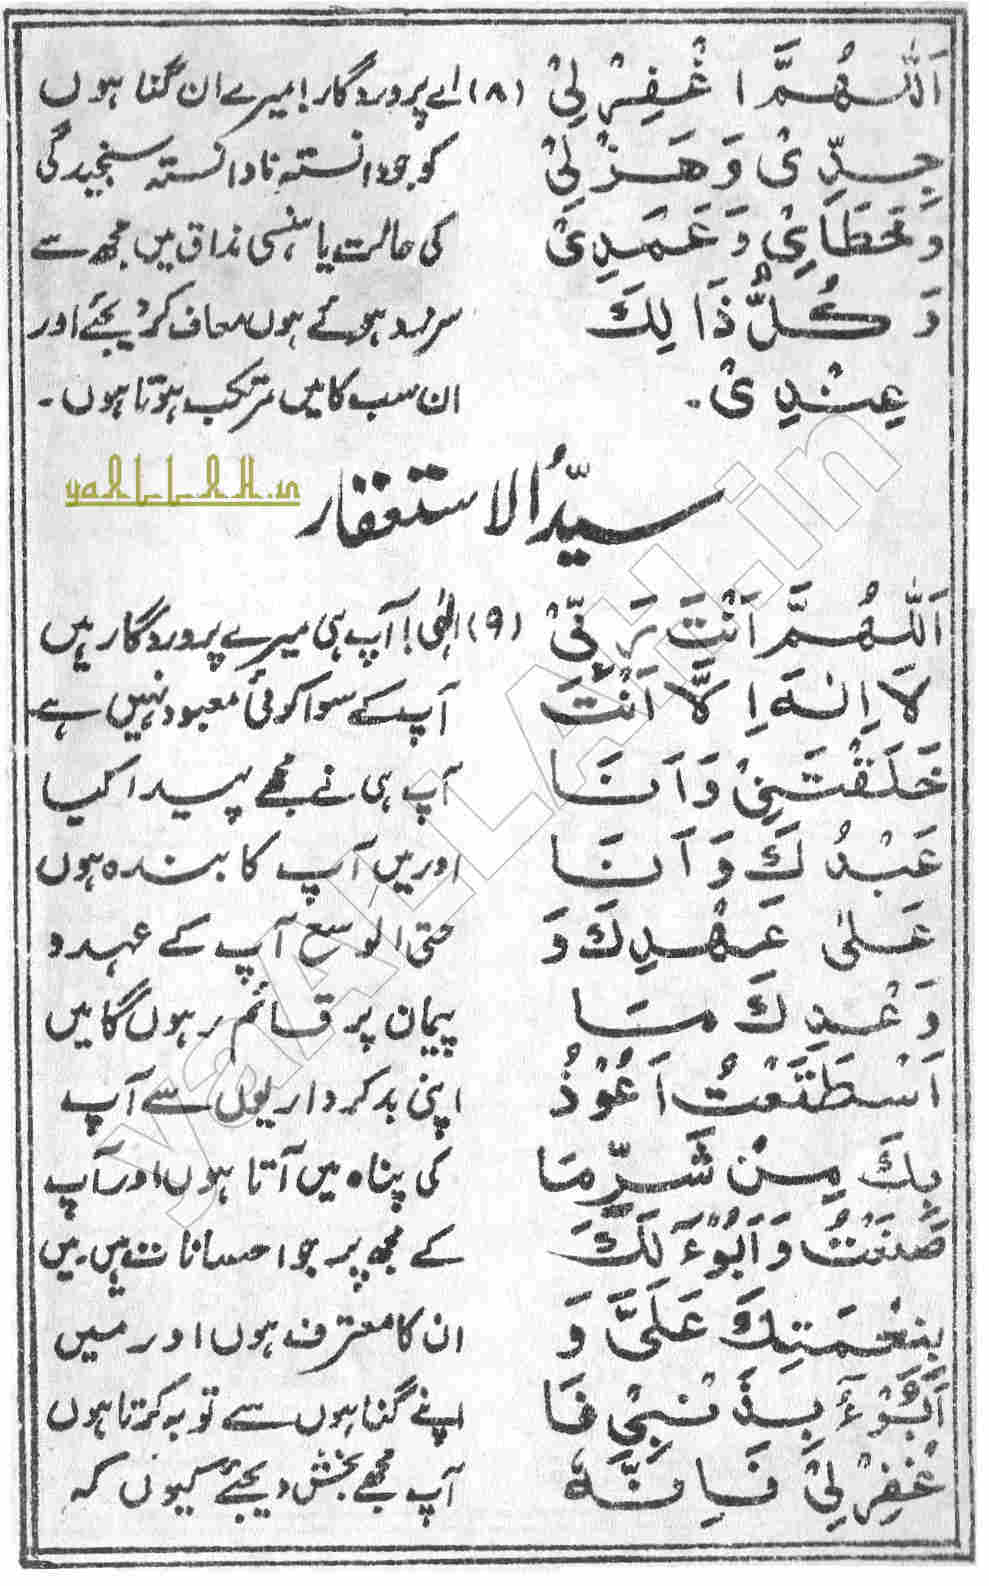 اَللّٰهُمَّ ا غْفِرْ لِيْ (۸) اے پروردگار! میرے ان گناہوں
جِدِّ يْ وَ هَزْ لِيْ کو جو دانستہ نادانستہ سنجیدگی
وَ خَطَائِيْ وَ عَمَدِيْ کی حالت یا ہنسی مذاق میں مجھ سے
وَ كُلُّ ذَا لِكَ سرزد ہوئے ہوں معاف کر دیجئے اور
عِنْدِ يْ۔ ان سب کا میں مرتکب ہوتا ہوں۔
yaALLAH.in
سیّدُ الاستغفار
اَللّٰهُمَّ اَنْتَ رَبِّيْ (۹) الٰہی! آپ ہی میرے پروردگار ہیں
لَا اِلٰهَ اِ لَّا اَنْتَ آپ کے سوا کوئی معبود نہیں ہے
خَلَقْتَنِيْ وَ اَنَا آپ ہی نے مجھے پیدا کیا
عَبْدُ كَ وَ اَنَا اور میں آپ کا بندہ ہوں
عَلٰى عَهْدِكَ وَ حتی الوسع آپ کے عہد و
وَعْدِ كَ مَا پیمان پر قائم رہوں گا میں
اَسْتَطَعْتُ اَعُوْذُ اپنی بدکرداریوں سے آپ
بِكَ مِنْ شَرِّ مَا کی پناہ میں آتا ہوں اور آپ
صَنَعْتُ وَ اَبُوْءُ لَكَ کے مجھ پر جو احسانات ہیں۔ میں
بِنِعْمَتِكَ عَلَيَّ وَ ان کا معترف ہوں اور میں
اَبُوْءُ بِذَ نْبِيْ فَا اپنے گناہوں سے توبہ کرتا ہوں
غْفِرْ لِيْ فَاِ نَّهٗ آپ مجھے بخش دیجئے کیوں کہ
yaALLAH.in